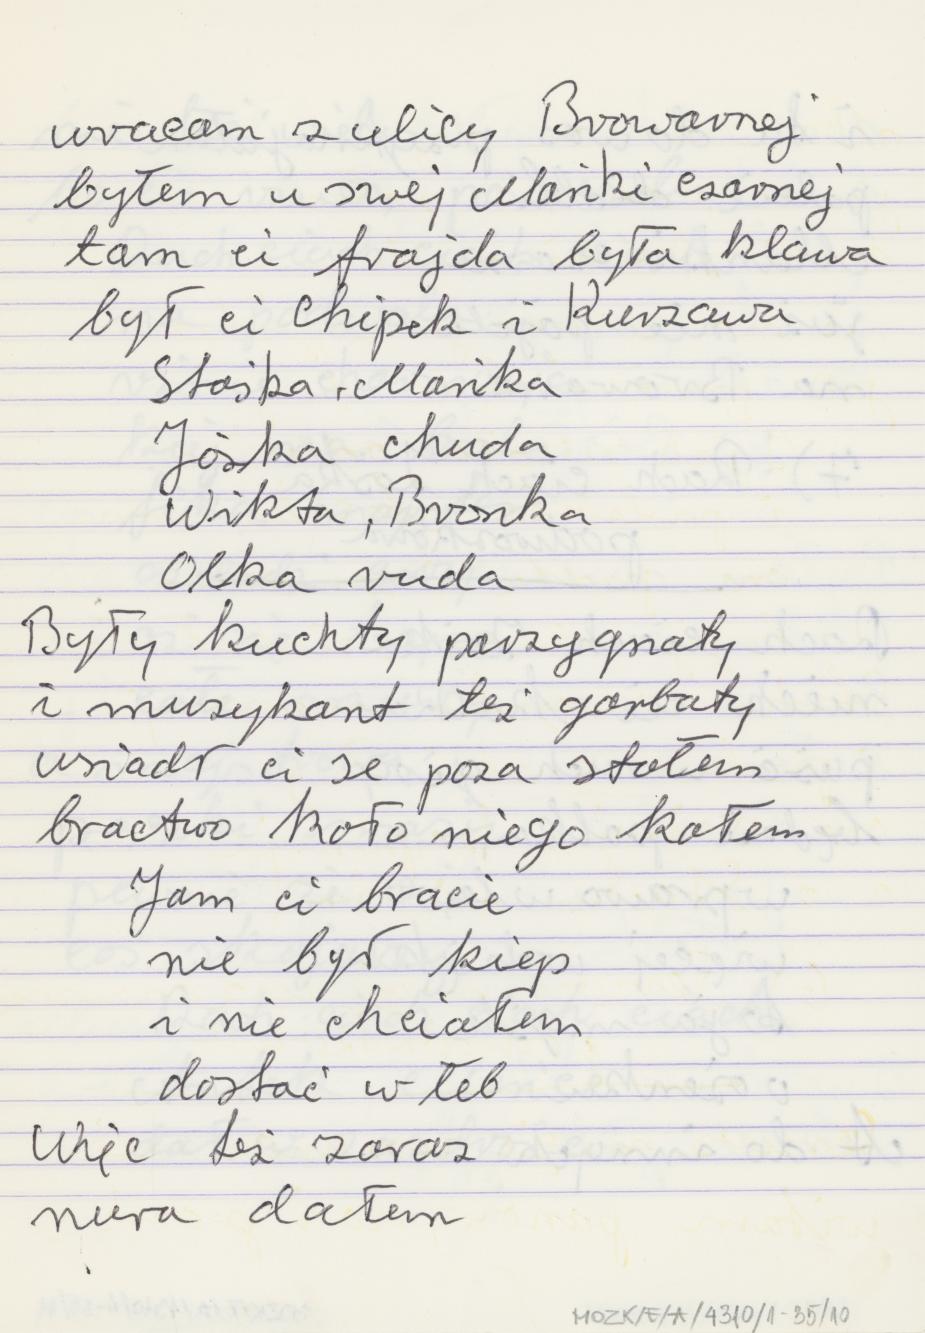 wracam z ulicy Browarnej
byłem u swej Mańki czarnej
tam ci frajda była klawa
był ci Chipek i Kurzawa
Staśka, Mańka
Jóśka chuda
Wikta, Bronka
Olka ruda
Były kuchty parzygnaty
i muzykant też garbaty
usiadł ci se poza stołem
bractwo koło niego kołem
Jam ci bracie
nie był kiep
i nie chciałem
dostać w łeb
Więc też zaraz
nura dałem
MOZK/E/A/4310/1-35/10